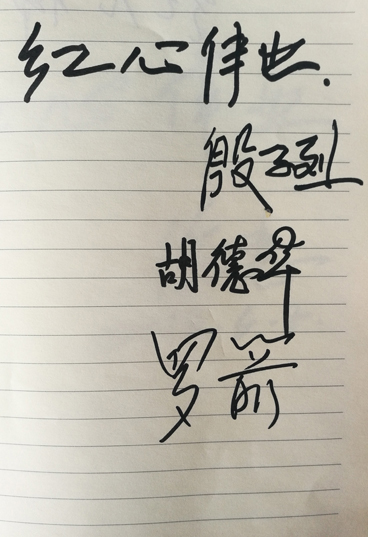 红心伴世.
殷子烈
胡德华
罗箭